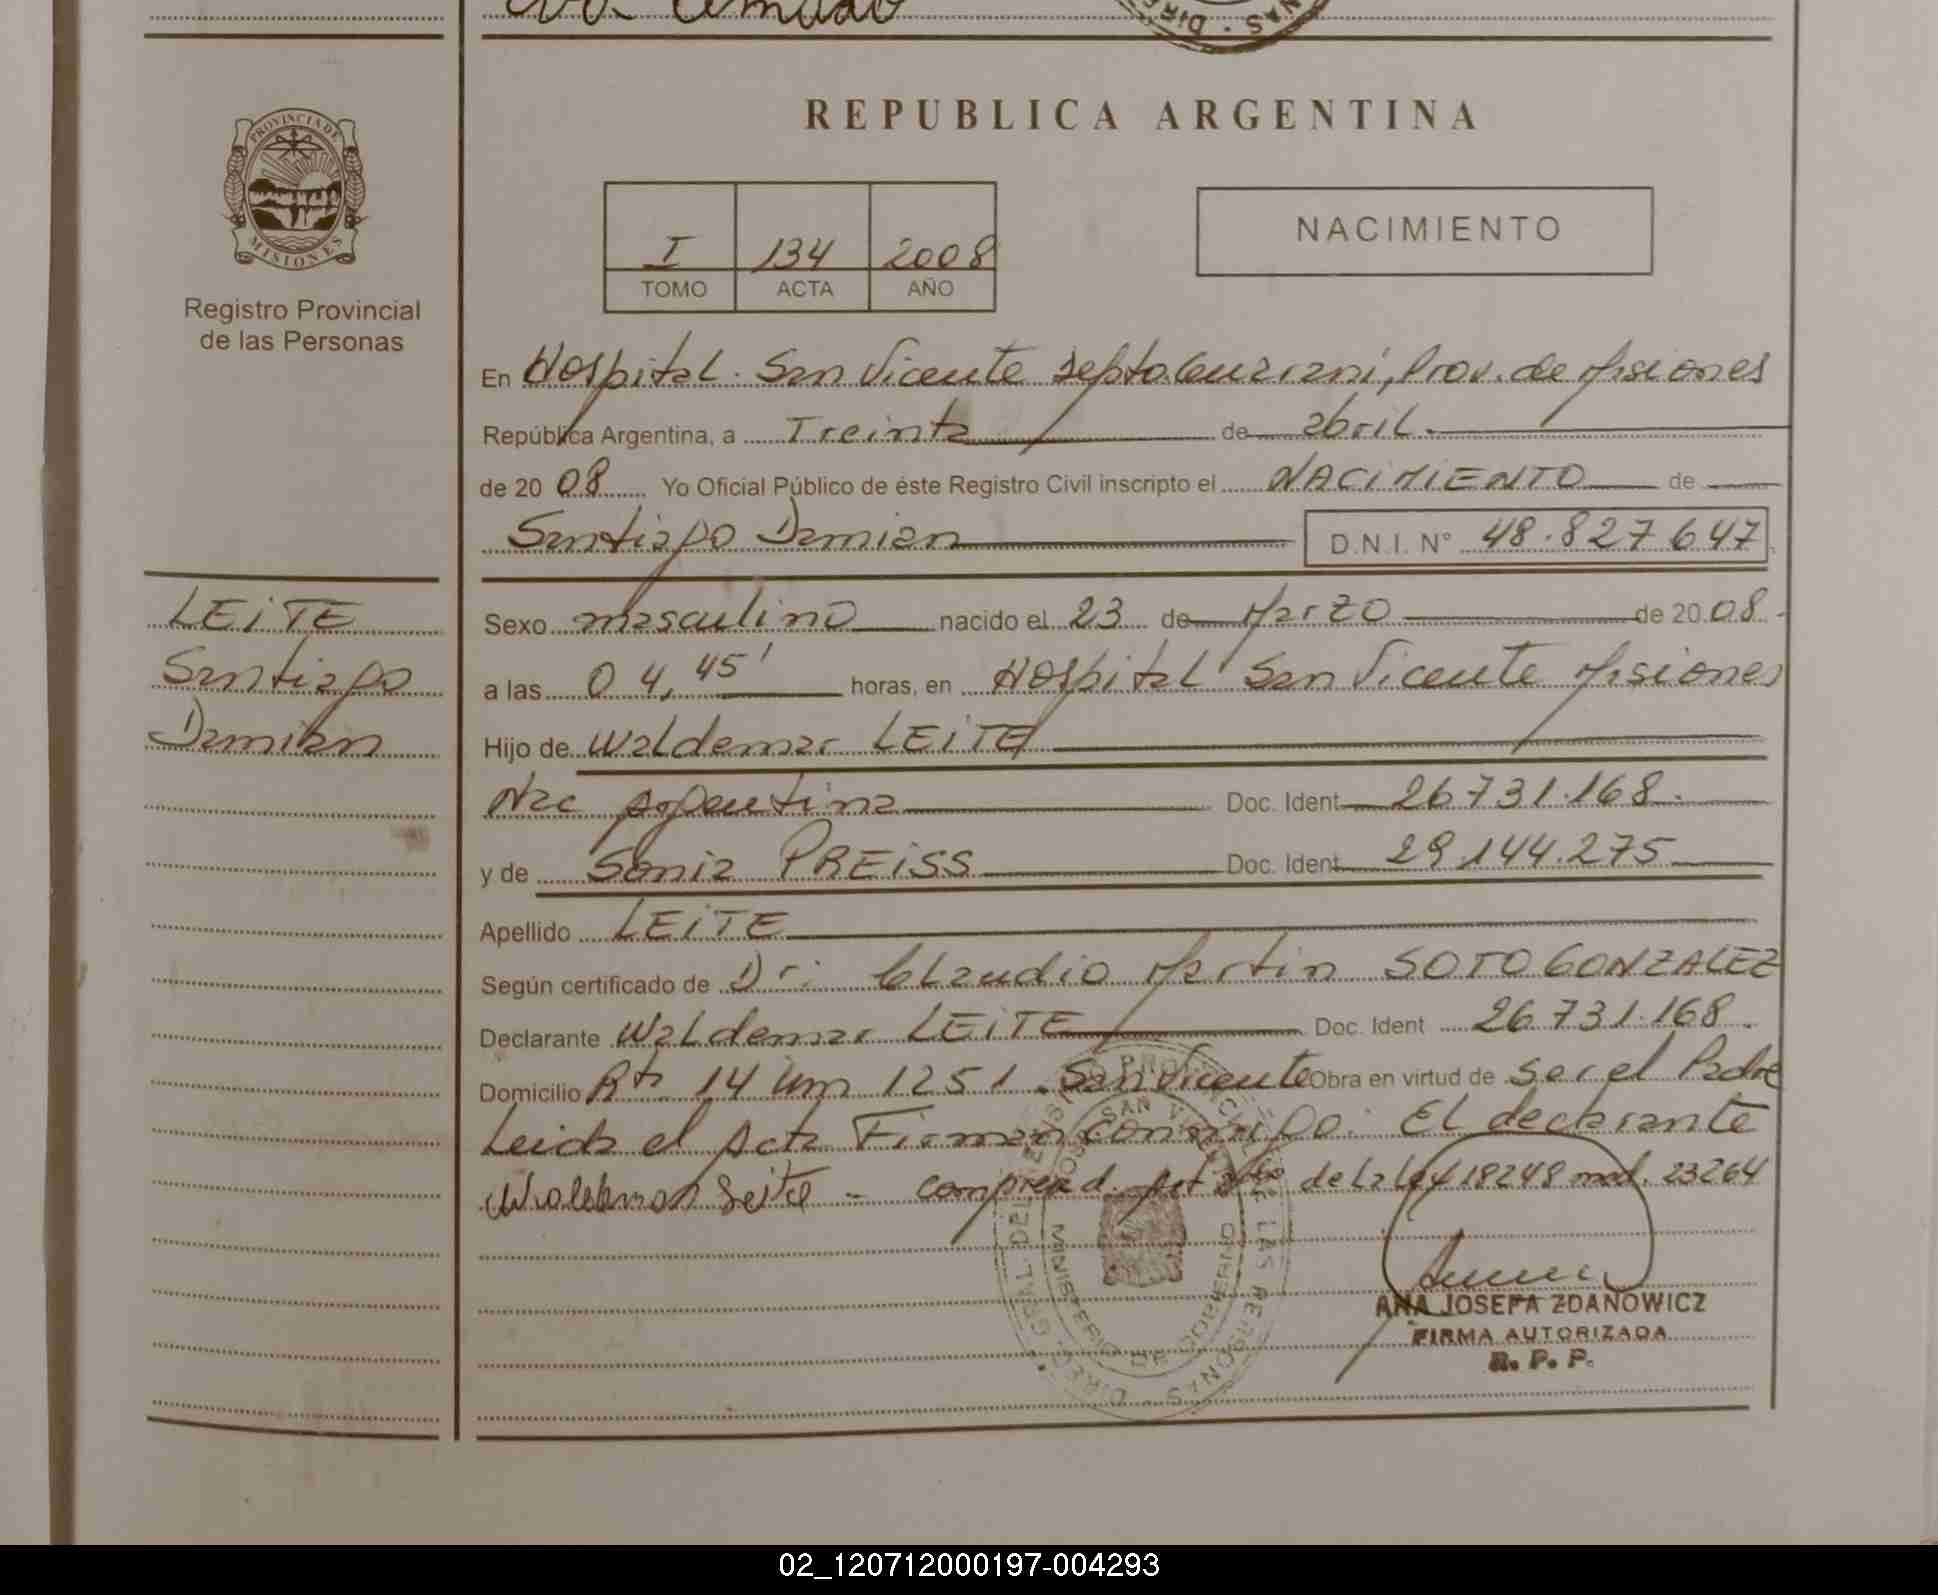 REPUBLICA ARGENTINA
PROVINCIA DE MISIONES
Registro Provincial
de las Personas
I 134 2008
TOMO ACTA AÑO
NACIMIENTO
En Hospital San Vicente Depto Guarani, Prov. de Misiones
República Argentina, a Treinta de abril.
de 20 08 Yo Oficial Público de éste Registro Civil inscripto el NACIMIENTO de
Santiago Damian D.N.I. N° 48.827647
LEITE
Santiago
Damian
Sexo masculino nacido el 23 de Marzo de 20 08.-
a las 04,45' horas, en Hospital San Vicente Misiones
Hijo de Waldemar LEITE
Nac Argentina Doc. Ident 26731.168.
y de Sonia PREISS Doc. Ident 29.144.275
Apellido LEITE
Según certificado de Dr: Claudio Martin SOTO GONZALEZ
Declarante Waldemar LEITE Doc. Ident 26731.168.
Domicilio Rta 14 Km 1251. San Vicente Obra en virtud de Ser el Padre
Leida el Acta Firman conmigo. El declarante
Waldemar Leite - comprend. de la ley 18248 mod. 23264
ANA JOSEFA ZDANOWICZ
FIRMA AUTORIZADA
R. P. P.
MINISTERIO DE GOBIERNO
02_120712000197-004293